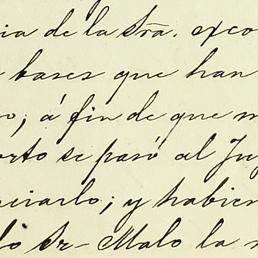 ia de la Sra. exco
bases que han
o; á fin de que m
orto se pasó al Ju
ciarlo; y habien
lo Sr- Malo la